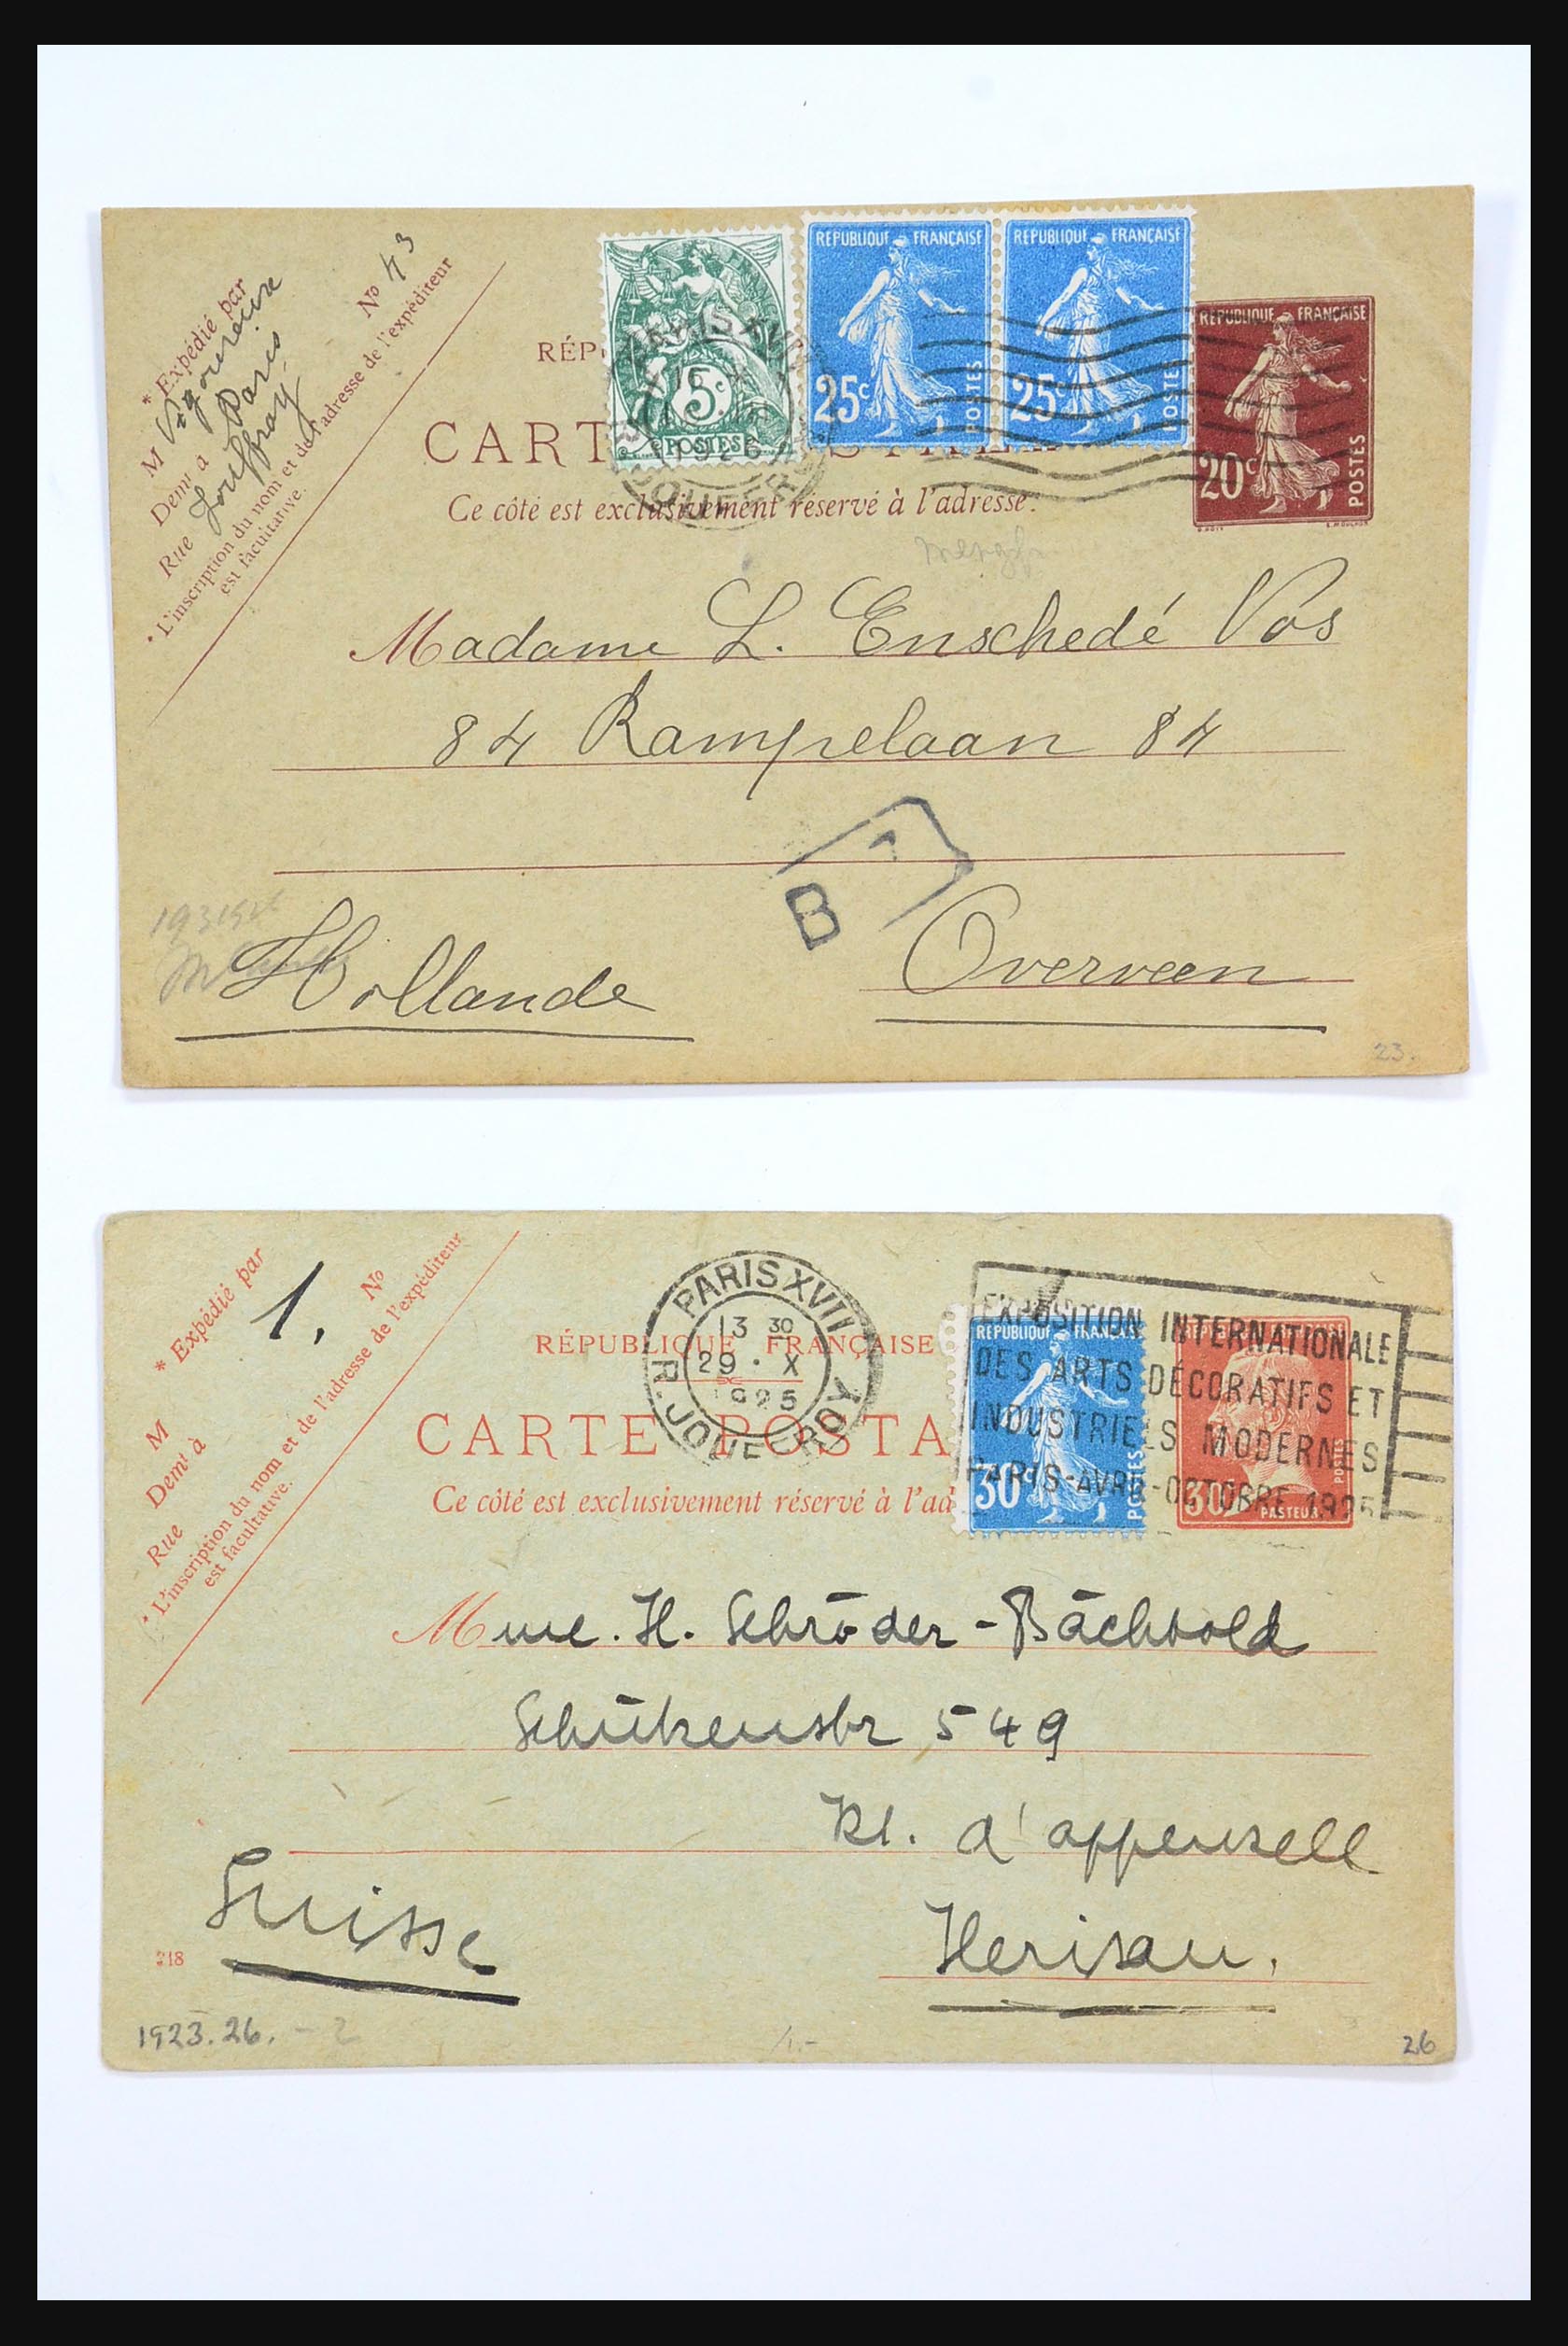 * Expédié par
M Vigoureuse
Demt à Paris
Rue Jouffroy
No 43
* L'inscription du nom et de l'adresse de l'expéditeur
est facultative.
RÉP
CART
5c
POSTES
REPUBLIQUE FRANÇAISE
25c
POSTES
REPUBLIQUE FRANÇAISE
25c
POSTES
REPUBLIQUE FRANÇAISE
20c
POSTES
Ce côté est exclusivement réservé à l'adresse.
Madame L. Enschedé Vos
84 Rampelaan 84
B 1
Overveen
Hollande
23.
* Expédié par
1.
M
Demt à
Rue
No
* L'inscription du nom et de l'adresse de l'expéditeur
est facultative.
RÉPUBLIQUE FRANÇAISE
CARTE POSTA
Ce côté est exclusivement réservé à l'ad
PARIS XVII
13 30
29 . X
1925
R. JOUFFROY
EXPOSITION INTERNATIONALE
DES ARTS DÉCORATIFS ET
INDUSTRIELS MODERNES
PARIS-AVRIL-OCTOBRE 1925
REPUBLIQUE FRANÇAISE
30c
POSTES
30c
POSTES
PASTEUR
Mme. H. Schröder-Bächtold
Schützenstr 549
Kt. d'appenzell
Herisau.
Suisse
218
1923.26. - 2
26